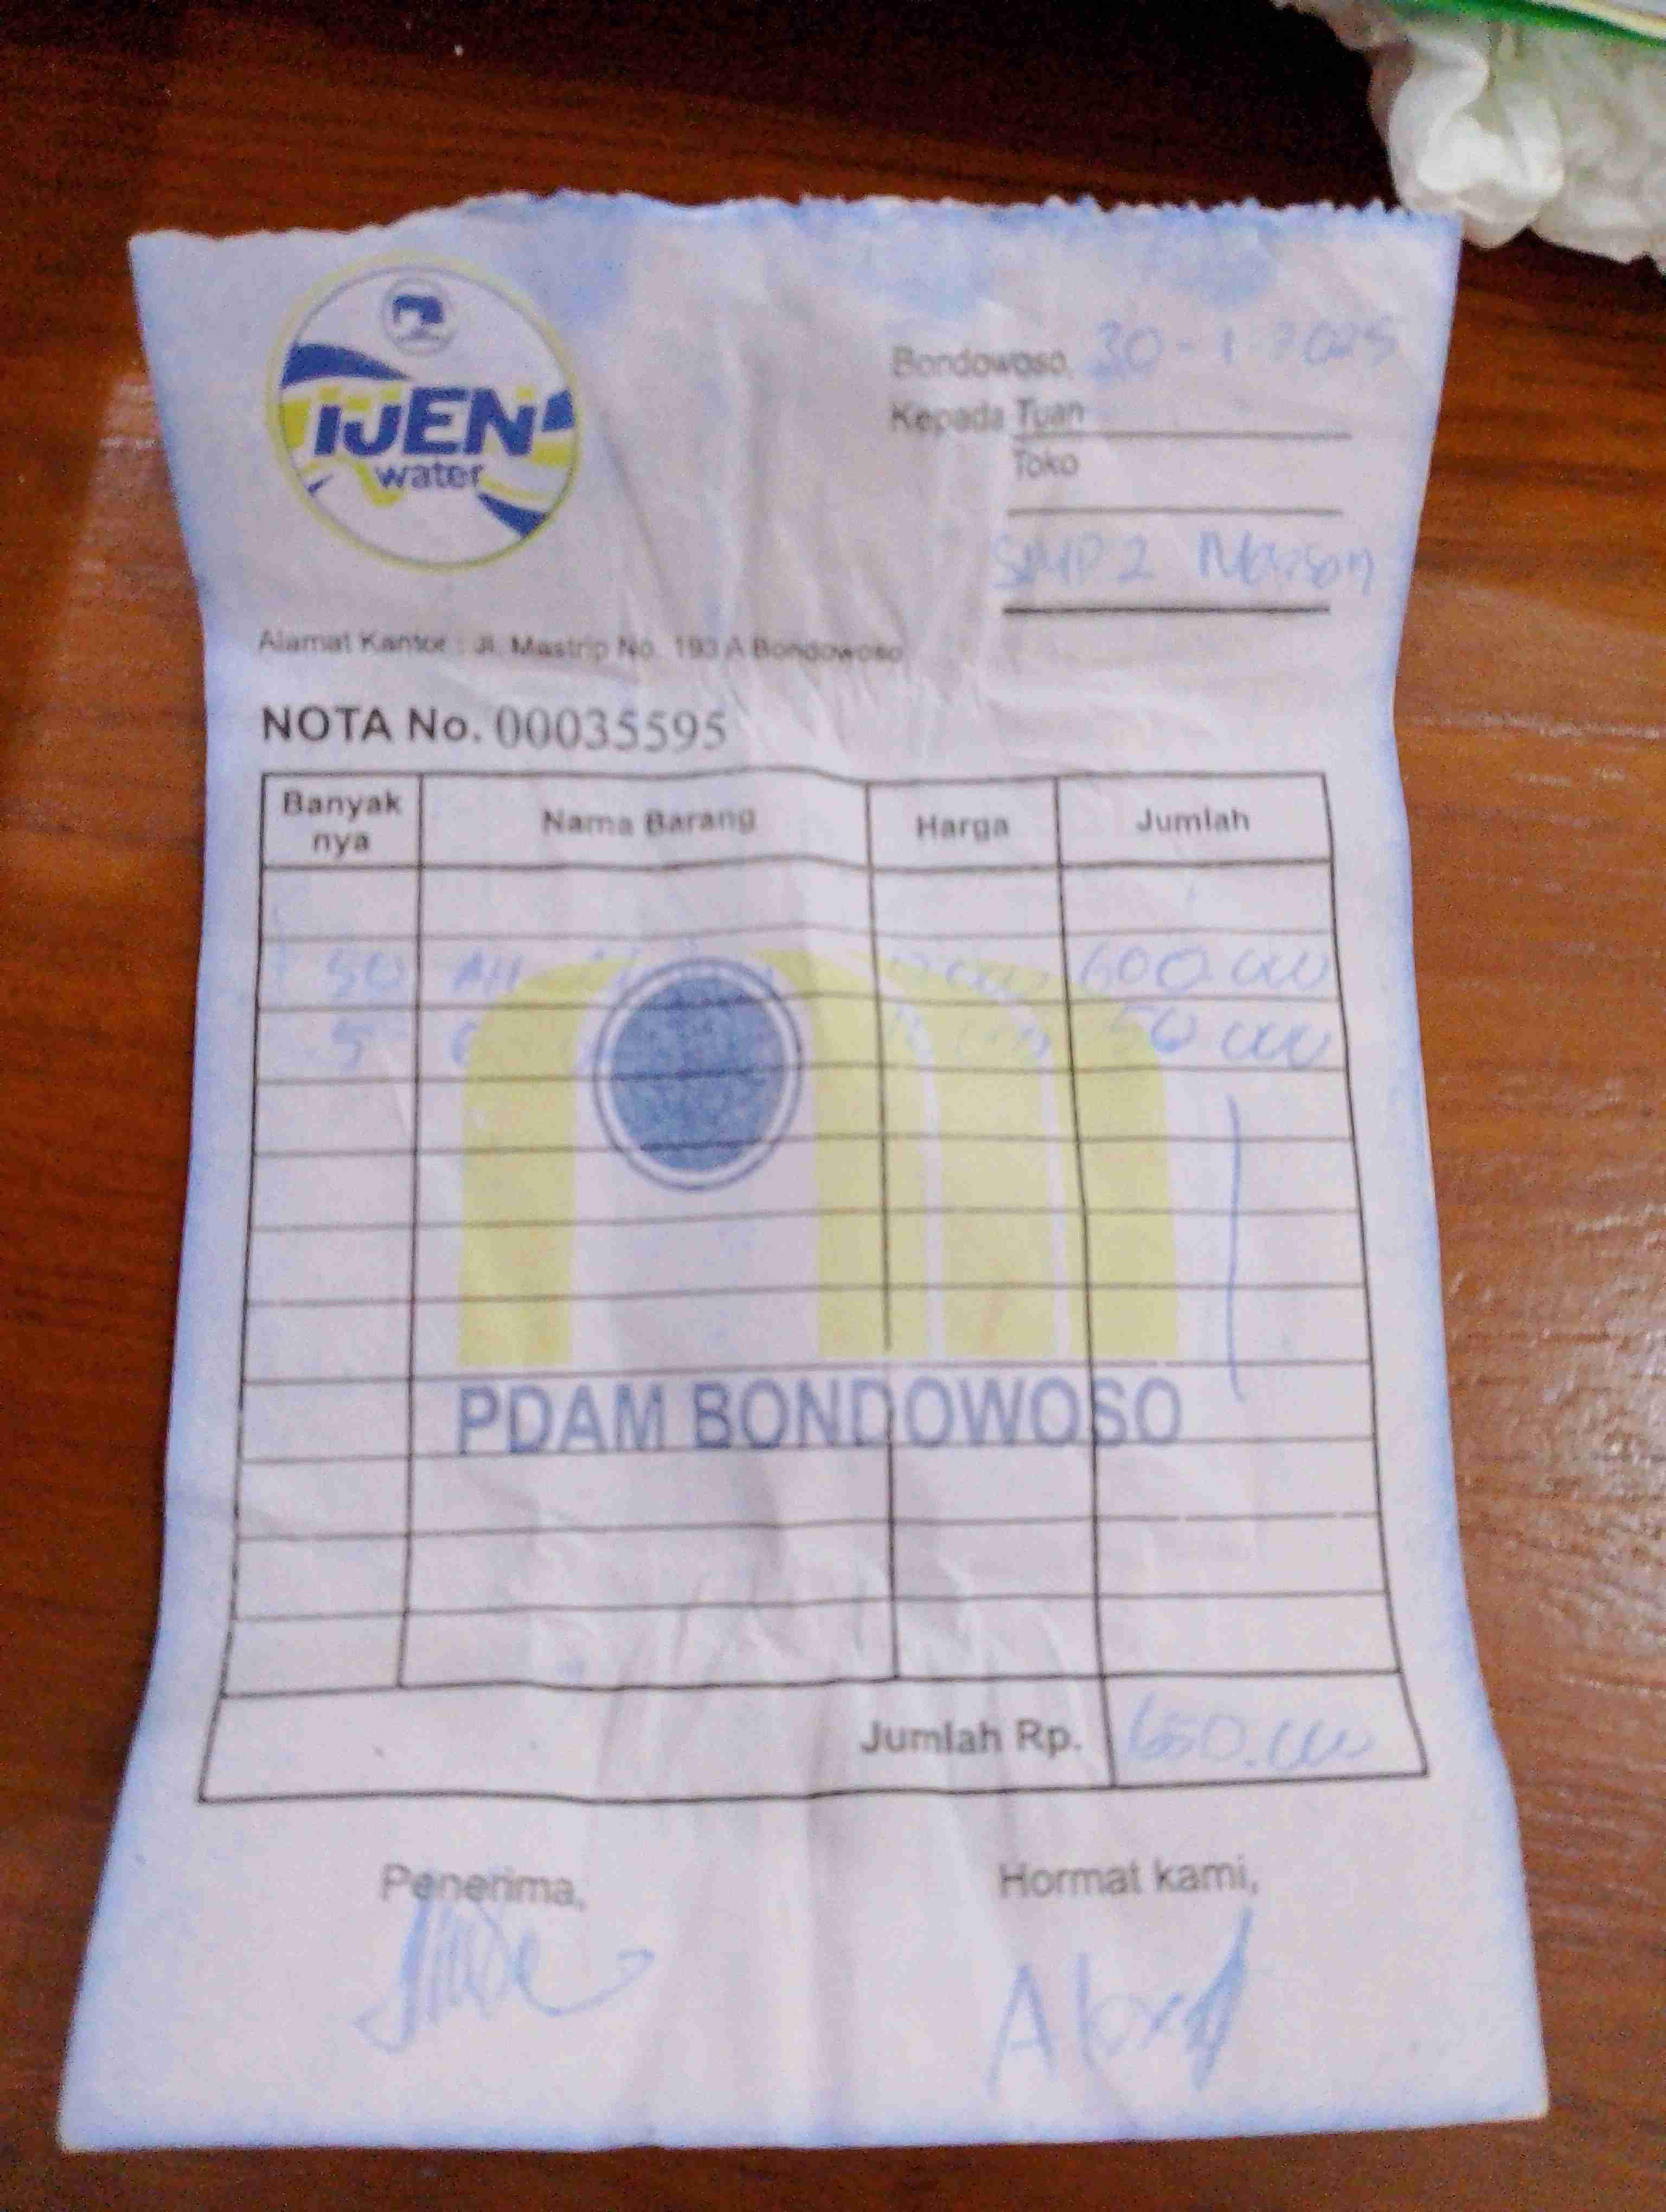 IJEN
water
Bondowoso, 30-1-2025
Kepada Tuan
Toko
SMP 2
Alamat Kantor : Jl. Mastrip No. 193 A Bondowoso
NOTA No. 00035595
Banyak nya Nama Barang Harga Jumlah
50 600 000
5 50 000
PDAM BONDOWOSO
Jumlah Rp. 650.000
Penerima, Hormat kami,